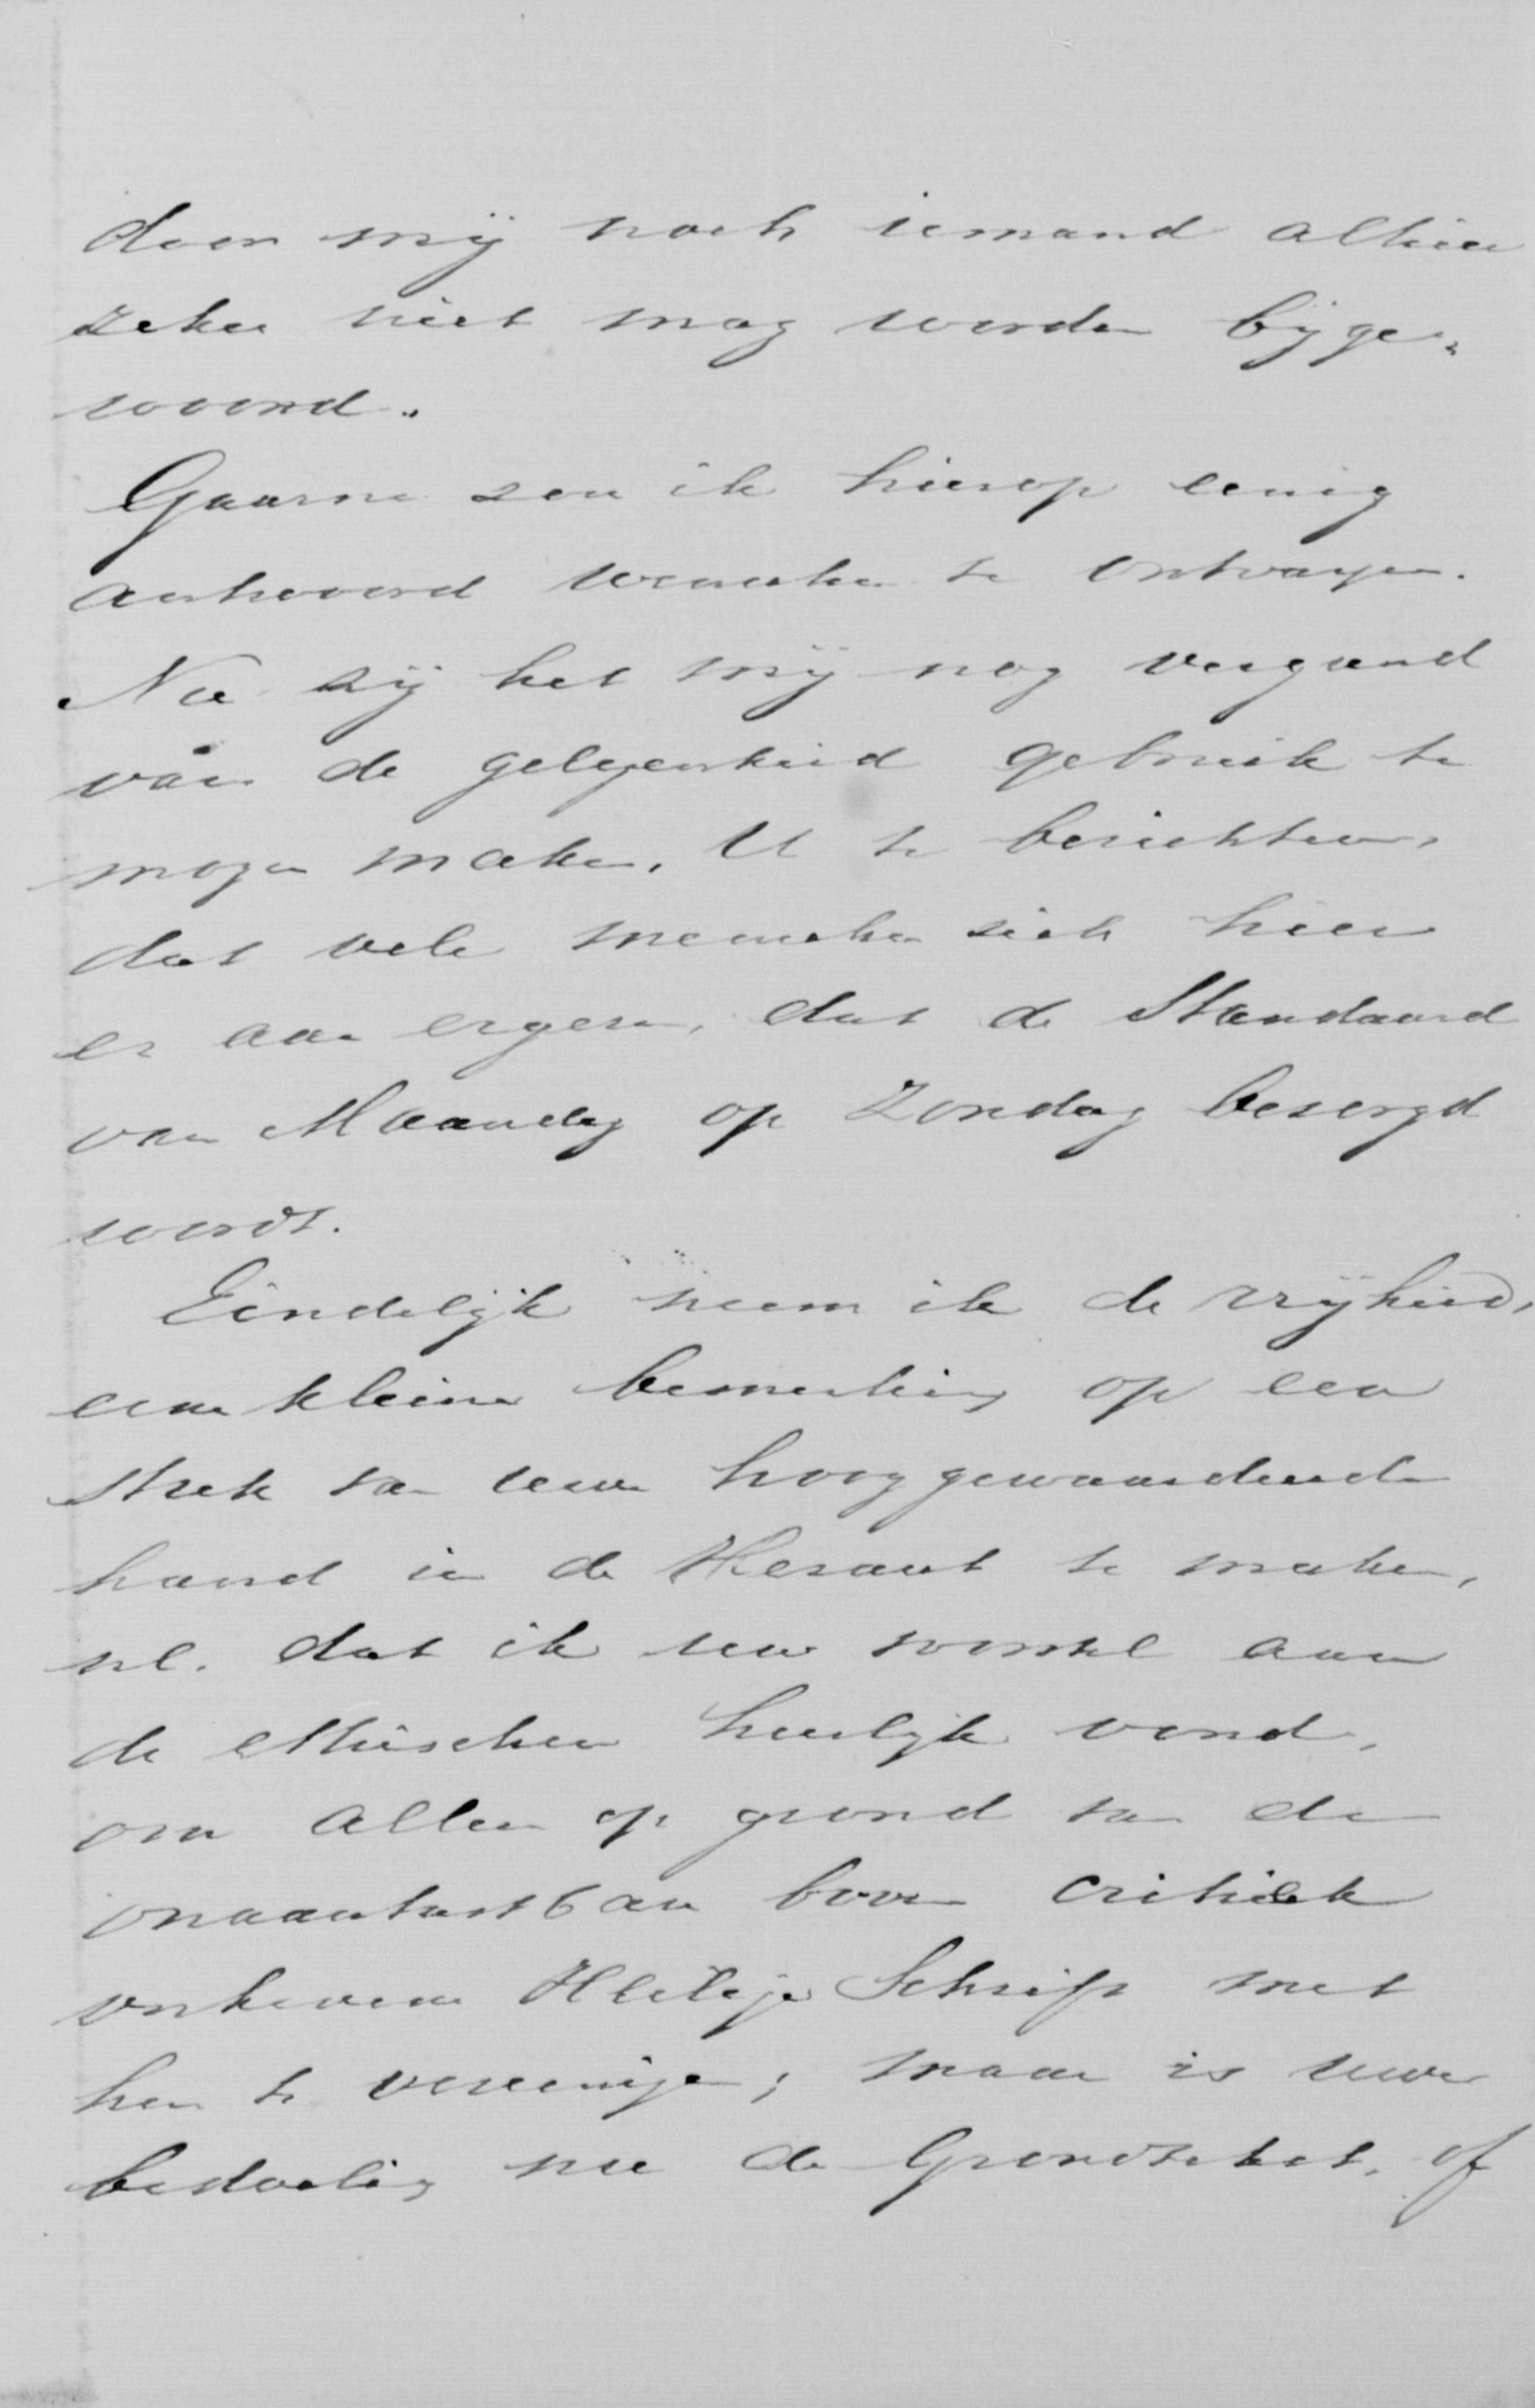 door mij noch iemand alhier
zeker niet mag worden bijge„
woond.
Gaarne zou ik hierop eenig
antwoord wenschen te ontvangen.
Nu zij het mij nog vergund
van de gelegenheid gebruik te
mogen maken, U te berichten,
dat vele menschen zich hier
er aan ergeren, dat de Standaard
van Maandag op Zondag bezorgd
wordt.
Eindelijk neem ik de vrijheid,
eene kleine bemerking op een
stuk van uwe hooggewaardeerde
hand in de Heraut te maken,
nl. dat ik uw voorstel aan
de ethischen heerlijk vond,
om alleen op grond van de
onaantastbare boven critiek
verhevene Heilige Schrift met
hen te vereenigen; maar is uwe
bedoeling nu de Grondtekst, of